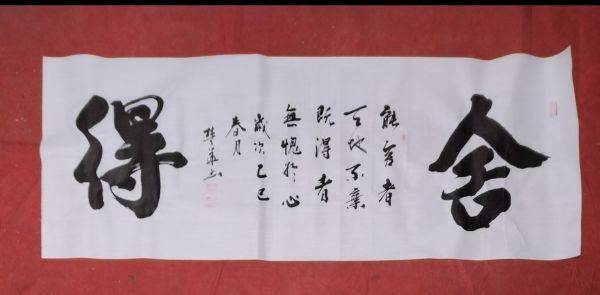 舍
能舍者
天地不棄
既得者
無愧於心
歲次乙巳
春月
得